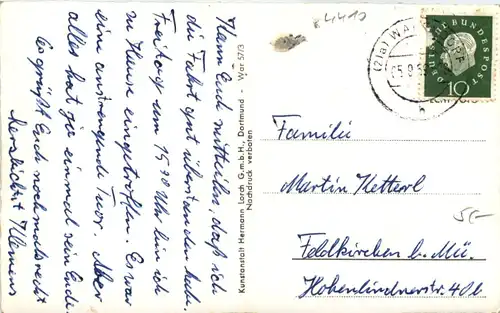 Kann Euch mitteilen, daß ich
die Fahrt gut überstanden habe.
Freitag um 15⁰⁰ Uhr bin ich
zu Hause eingetroffen. Es war
eine anstrengende Tour. Aber
alles hat ja einmal sein Ende.
Es grüßt Euch nochmals recht
herzlichst Klemens
Kunstanstalt Hermann Lorch G.m.b.H., Dortmund - War 57/3
Nachdruck verboten
4410
(21a) WA
DEUTSCHE BUNDESPOST
10
Familie
Martin Ketterl
Feldkirchen b. Mü.
Hohenlindnerstr. 40b